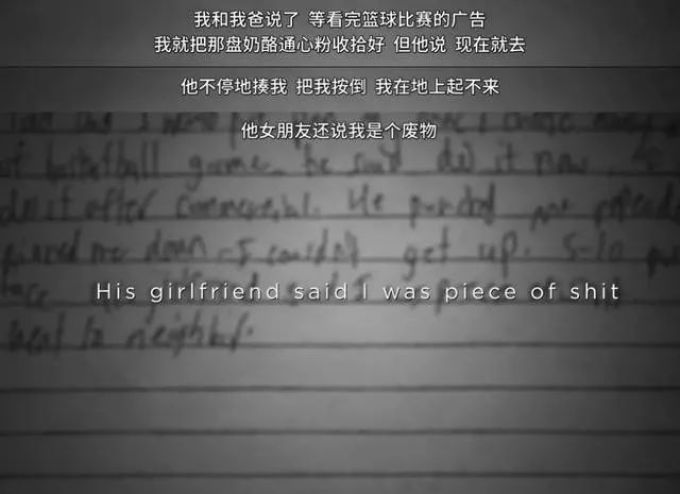 我和我爸说了 等看完篮球比赛的广告
我就把那盘奶酪通心粉收拾好 但他说 现在就去
他不停地揍我 把我按倒 我在地上起不来
他女朋友还说我是个废物
of basketball game. he said do it now
do it after commercial. He punched me repeatedly
pinned me down - I couldn't get up. 5-10
His girlfriend said I was piece of shit
went to neighbor.